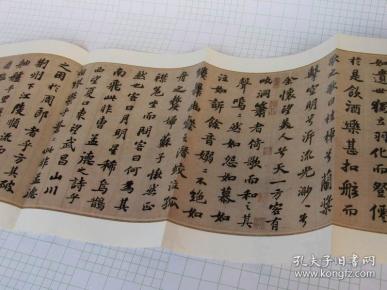 如遺世獨立羽化而登僊
於是飲酒樂甚扣舷而
歌之歌曰桂棹兮蘭槳
擊空明兮泝流光渺渺兮
余懷望美人兮天一方客有
吹洞簫者倚歌而和之其
聲嗚嗚然如怨如慕如
泣如訴餘音嫋嫋不絕如
縷舞幽壑之潛蛟泣孤
舟之嫠婦蘇子愀然正
襟危坐而問客曰何為其
然也客曰月明星稀烏鵲
南飛此非曹孟德之詩乎
西望夏口東望武昌山川
相繆鬱乎蒼蒼此非孟德
之困於周郎者乎方其破
荊州下江陵順流而
孔夫子旧书网